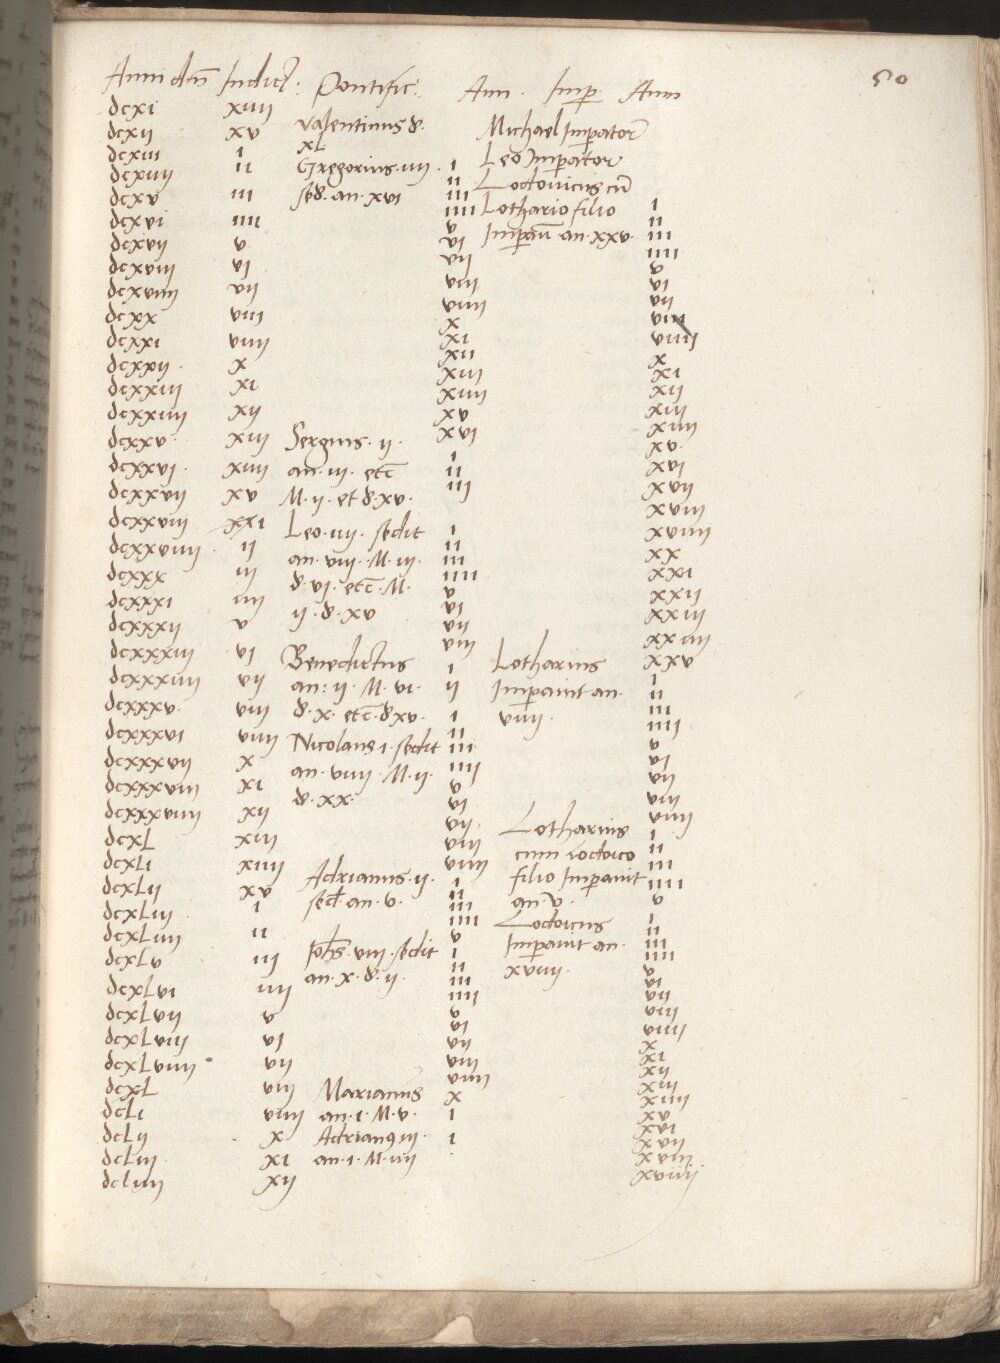 Anni dñi Indict. Pontific. Ann. Imp. Anni 50
dcxi xiiij
dcxij xv Valentinus d. Michael Imperator
dcxiij i xL Leo Imperator
dcxiiij ii Gregorius iiij. i Lodovicus cũ
dcxv iii sed. an. xvi ii Lothario filio i
dcxvi iiii iii Imperaũ an. xxv. ii
dcxvij v. iiii iii
dcxviij vi v iiii
dcxviiij vij vi v
dcxx viij vij vi
dcxxi viiij viij vij
dcxxij x viiij viij
dcxxiij xi x viiij
dcxxiiij xij xi x
dcxxv. xiij Sergius. ij. xij xi
dcxxvi. xiiij an. iij. etc̃ xiij xij
dcxxvij xv M. ij. et d. xv. xiiij xiij
dcxxviij xxi Leo. iiij. sedit xv xiiij
dcxxviiij ij an. viij. M. iij. xvi xv.
dcxxx iij d. vi. etc̃. M. i xvi
dcxxxi iiij ij. d. xv ii xvij
dcxxxij v iij xviij
dcxxxiij vi Benedictus i Lotharius xviiij
dcxxxiiij vij an: ij. M. vi. ii Imperavit an. xx
dcxxxv. viij d. x. etc̃. d xv. iii viiij. xxi
dcxxxvi viiij Nicolaus i. sedit iiii xxij
dcxxxvij x an. viiij. M. ij. v xxiij
dcxxxviij xi d. xx. vi xxiiij
dcxxxviiij xij vij Lotharius xxv
dcxL xiij viij cum Lodoico i
dcxLi xiiij Adrianus. ij. i filio Imperavit ii
dcxLij xv sed. an. v. ii an. v. iii
dcxLiij i i Lodoicus iiii
dcxLiiij ii ii Imperavit an. v
dcxLv iij Johs. viij. sedit iii xviiij. vi
dcxLvi iiij an. x. d. ij. iiii vij
dcxLvij v v viij
dcxLviij vi vi viiij
dcxLviiij vij vij x
dcxL viij Marianus viij xi
dcLi viiij an. i. M. v. viiij xij
dcLij x Adrianus iij. x xiij
dcLiij xi an. i. M. iiij i xviij
dcLiiij xij i xviiij